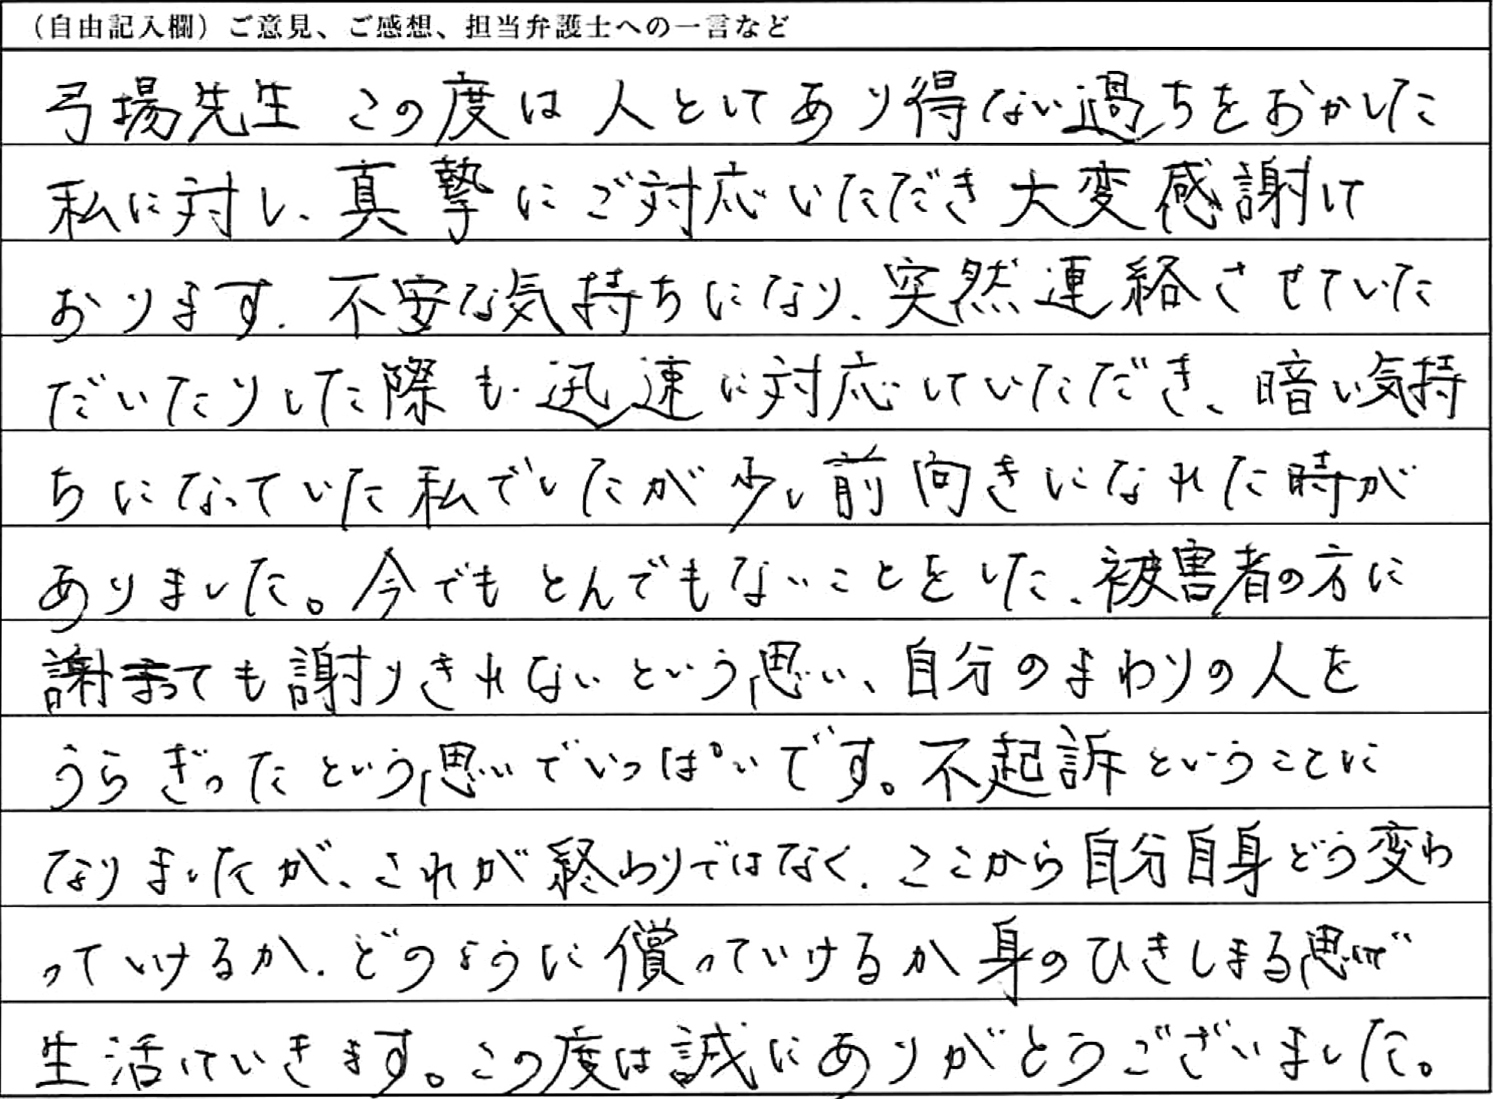 （自由記入欄）ご意見、ご感想、担当弁護士への一言など
弓場先生 この度は人としてあり得ない過ちをおかした
私に対し、真摯にご対応いただき大変感謝して
おります。不安な気持ちになり、突然連絡させていた
だいたりした際も迅速に対応していただき、暗い気持
ちになっていた私でしたが少し前向きになれた時が
ありました。今でもとんでもないことをした、被害者の方に
謝まっても謝りきれないという思い、自分のまわりの人を
うらぎったという思いでいっぱいです。不起訴ということに
なりましたが、これが終わりではなく、ここから自分自身どう変わ
っていけるか、どのように償っていけるか身のひきしまる思いで
生活していきます。この度は誠にありがとうございました。